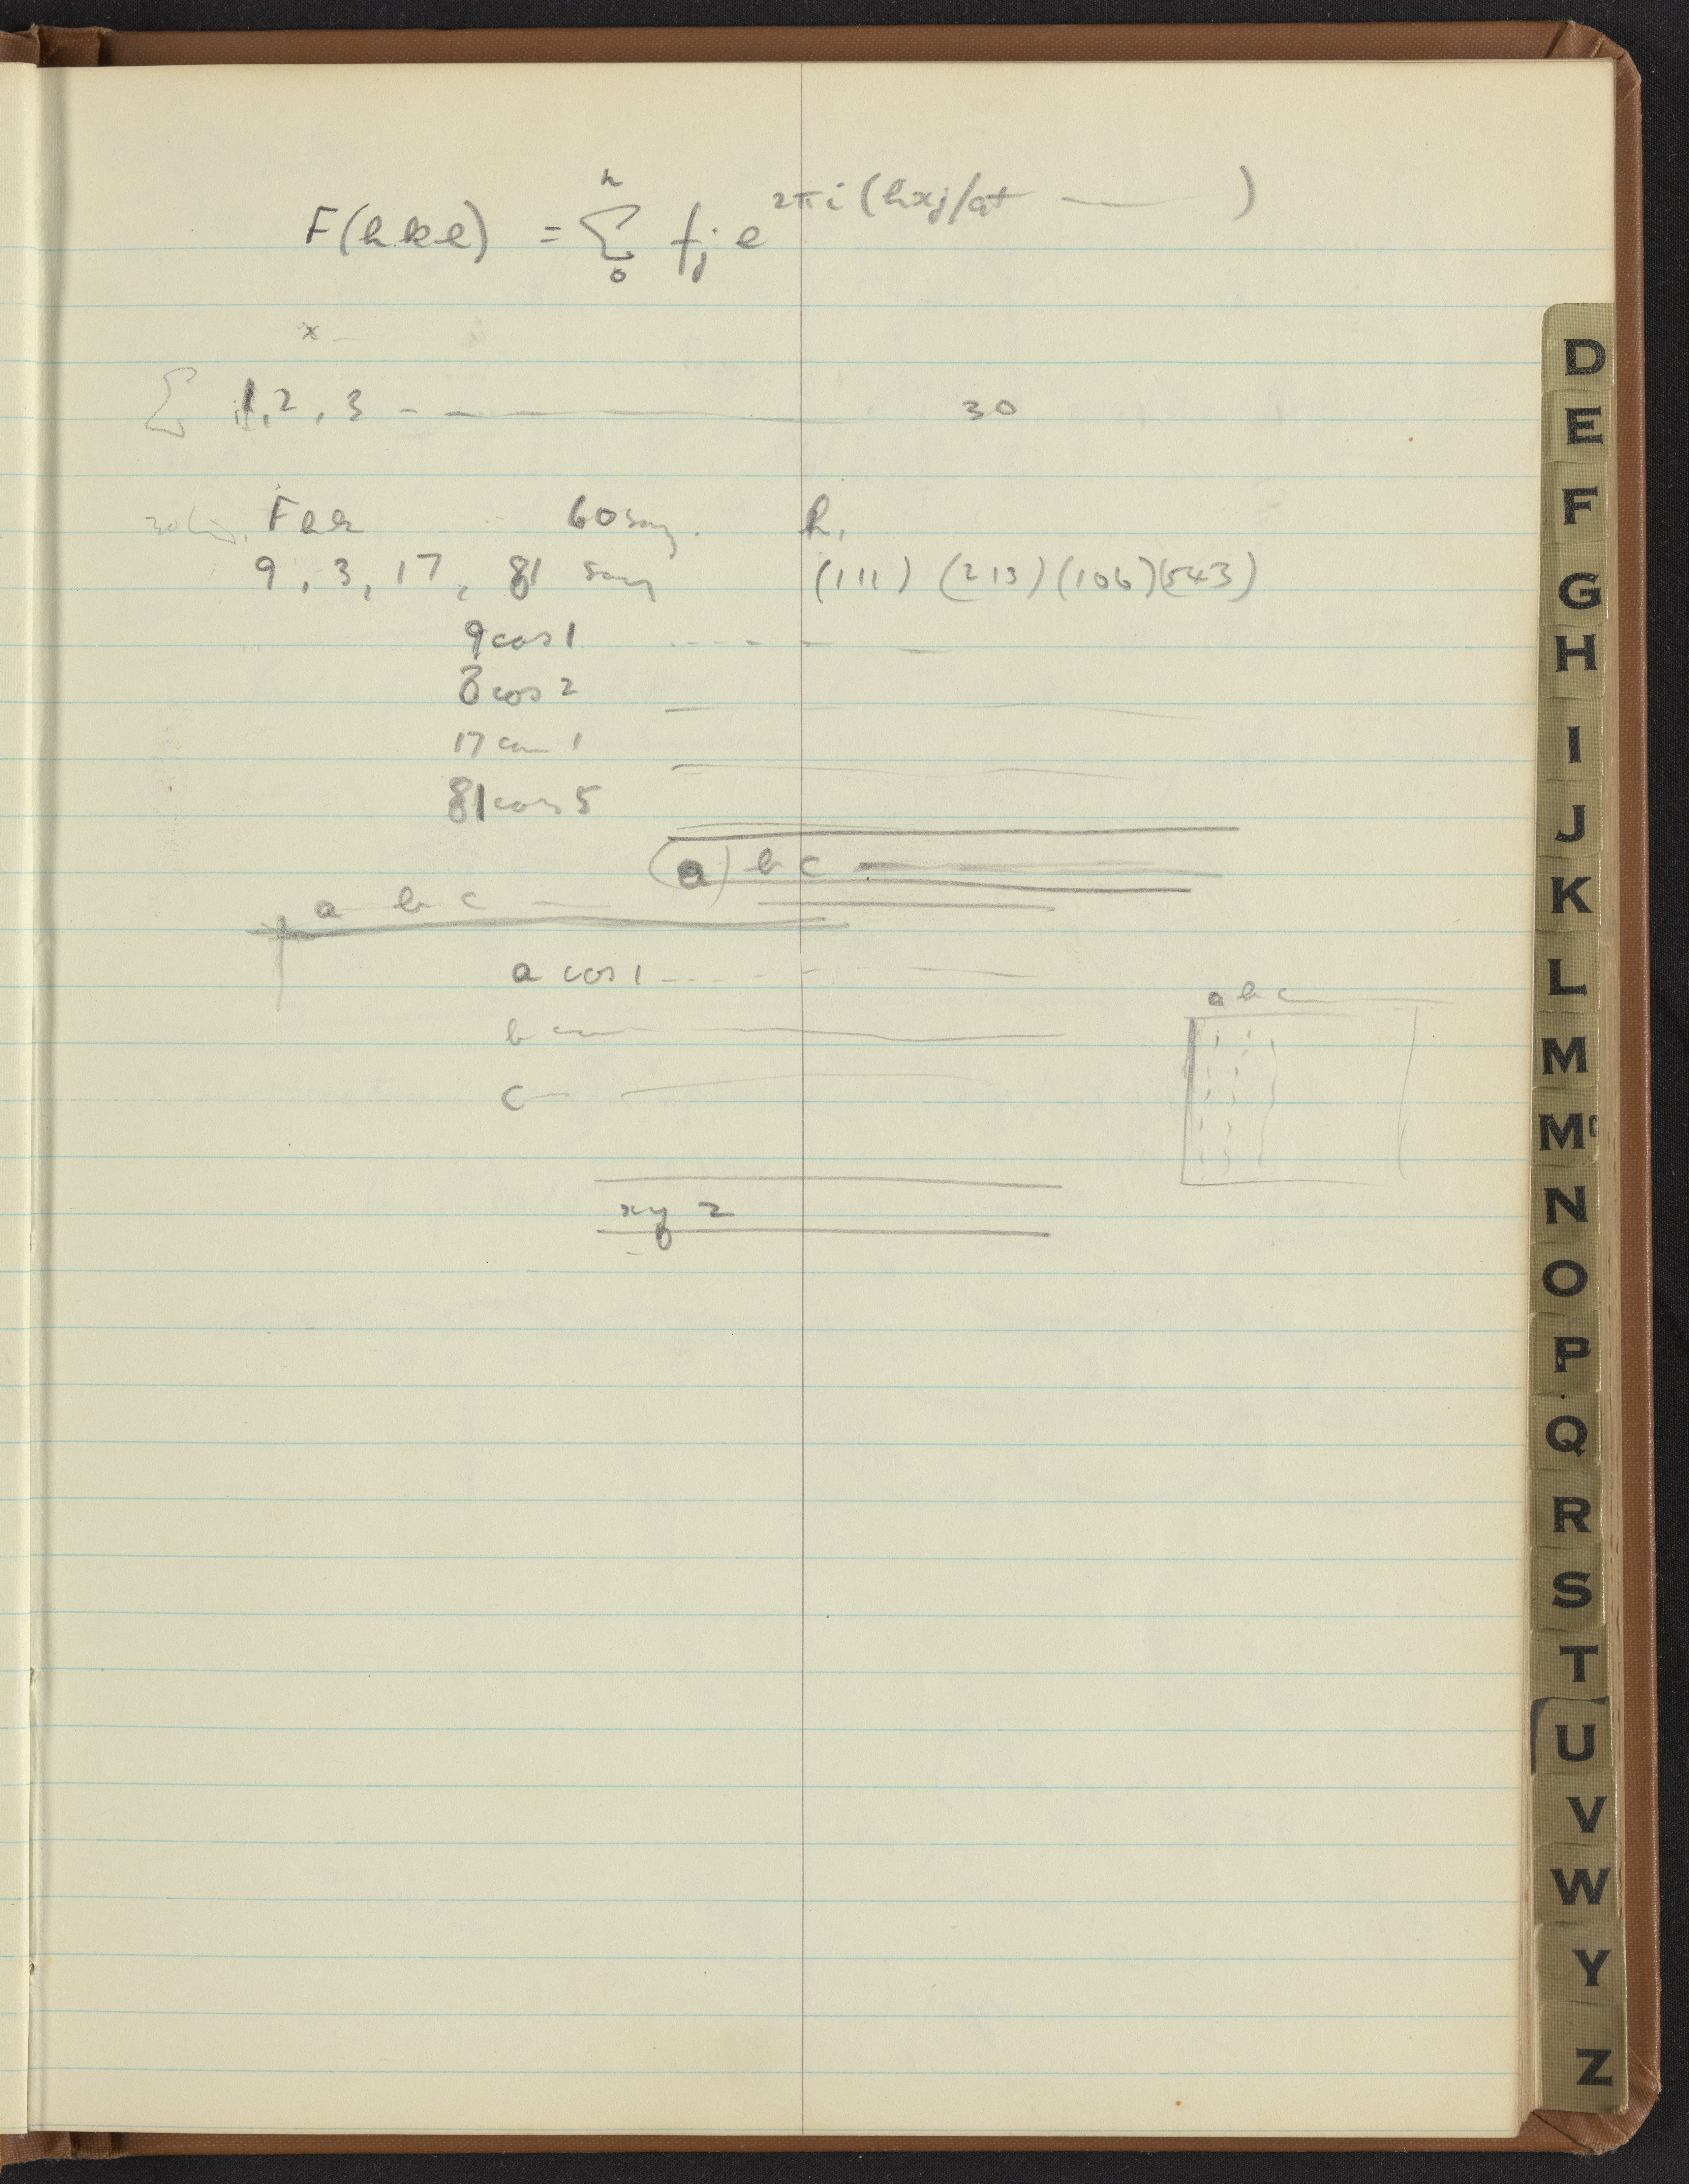 F(hkl) = Σ n 0 fj e 2πi (hxj/a+ —— )
x –
Σ 1, 2, 3 - — —— 30
60 say. h,
9, 3, 17, 81 say (111) (213) (106) (543)
9 cos 1 - - - -
3 cos 2
17 cos 1
81 cos 5
(a) b c ——
a b c —
a cos 1 - - -
a b c —
b
c
x y z
D
E
F
G
H
I
J
K
L
M
Mc
N
O
P
Q
R
S
T
U
V
W
Y
Z